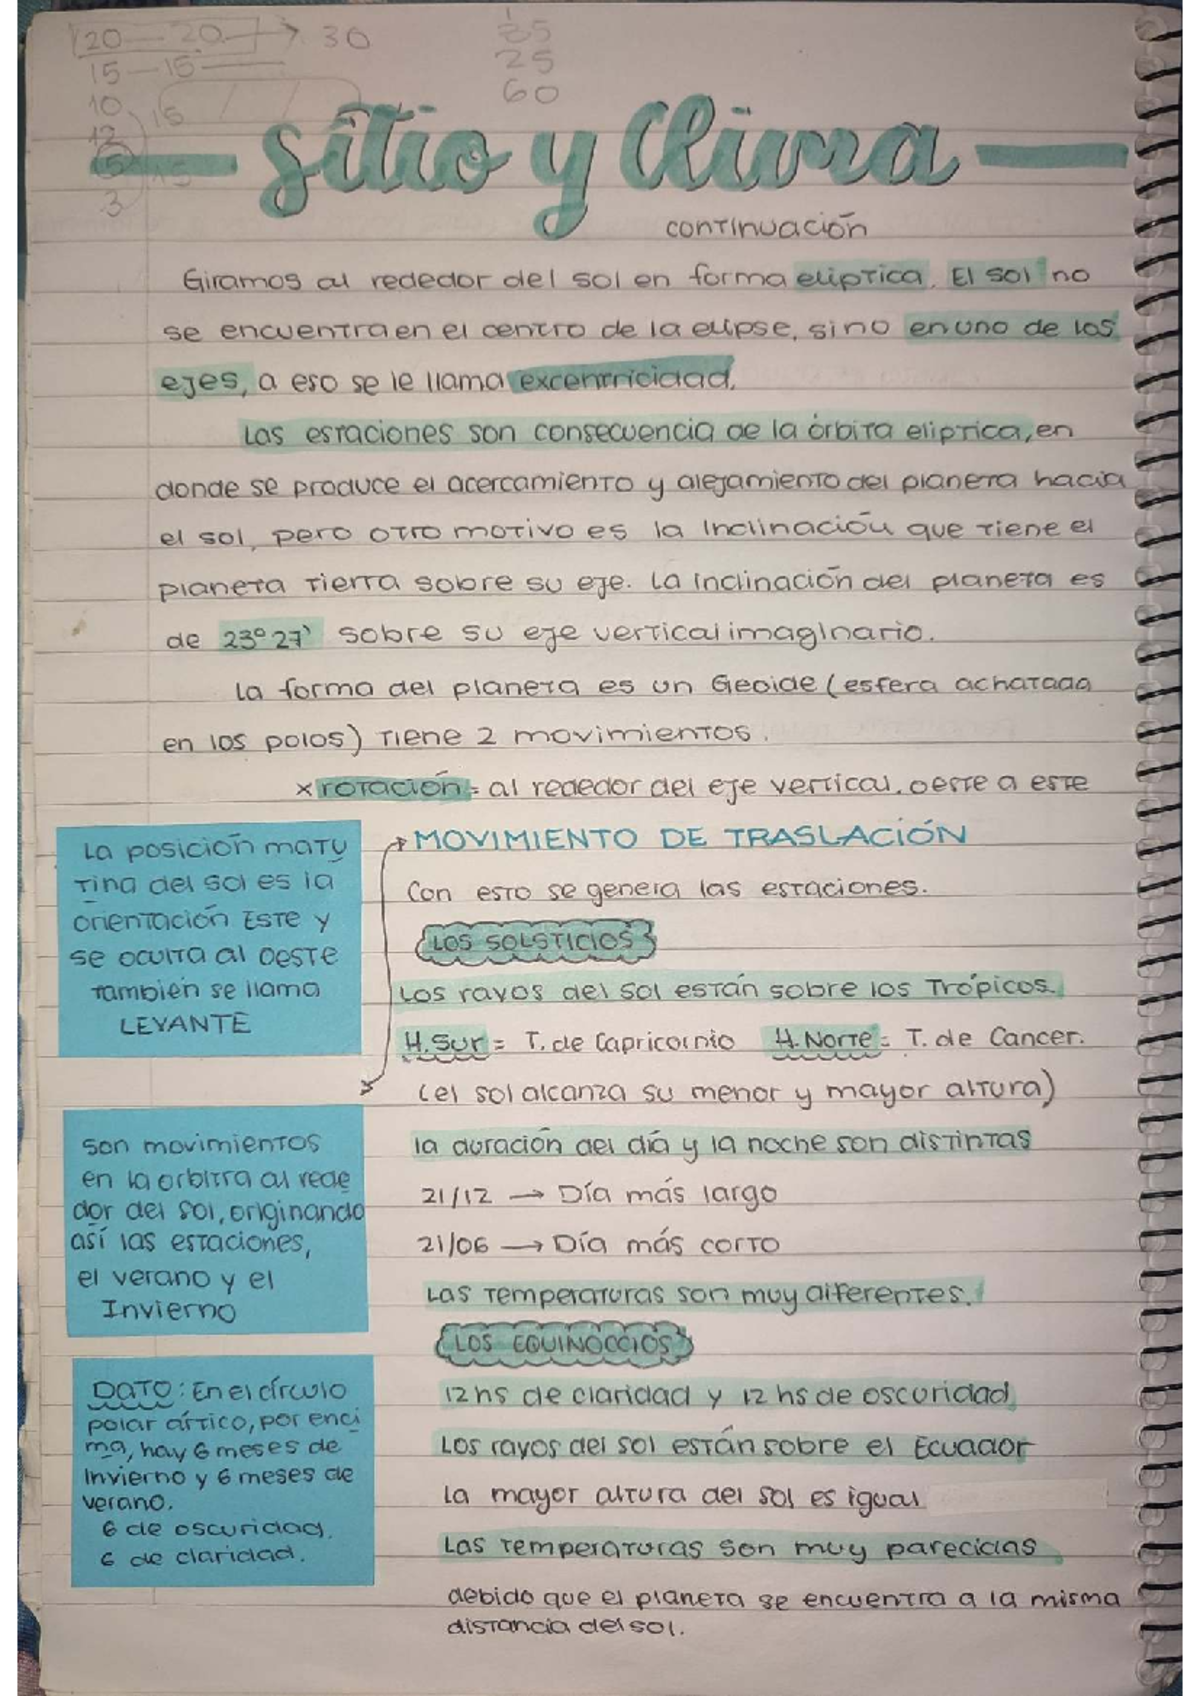 20 — 20 → 30
15 — 15
10
15
12
5
15
3
25
60
Sitio y Clima
continuación
Giramos al rededor del sol en forma eliptica. El sol no
se encuentra en el centro de la elipse, sino en uno de los
ejes, a eso se le llama excentricidad.
Las estaciones son consecuencia de la órbita eliptica, en
donde se produce el acercamiento y alejamiento del planeta hacia
el sol, pero otro motivo es la Inclinación que tiene el
planeta Tierra sobre su eje. La Inclinación del planeta es
de 23º 27' sobre su eje vertical imaginario.
La forma del planeta es un Geoide (esfera achatada
en los polos) Tiene 2 movimientos.
x rotación = al rededor del eje vertical, oeste a este
La posición matu
tina del sol es la
orientación Este y
se oculta al oeste
también se llama
LEVANTE
MOVIMIENTO DE TRASLACIÓN
Con esto se genera las estaciones.
LOS SOLSTICIOS
Los rayos del sol están sobre los Trópicos.
H. Sur = T. de Capricornio H. Norte = T. de Cancer.
(el sol alcanza su menor y mayor altura)
la duración del día y la noche son distintas
21/12 → Día más largo
21/06 → Día más corto
Las temperaturas son muy diferentes.
Son movimientos
en la orbitra al rede
dor del sol, originando
así las estaciones,
el verano y el
Invierno
LOS EQUINOCCIOS
12 hs de claridad y 12 hs de oscuridad
Los rayos del sol están sobre el Ecuador
La mayor altura del sol es igual
Las temperaturas son muy parecidas
debido que el planeta se encuentra a la misma
distancia del sol.
DATO: En el círculo
polar ártico, por enci
ma, hay 6 meses de
Invierno y 6 meses de
verano.
6 de oscuridad.
6 de claridad.